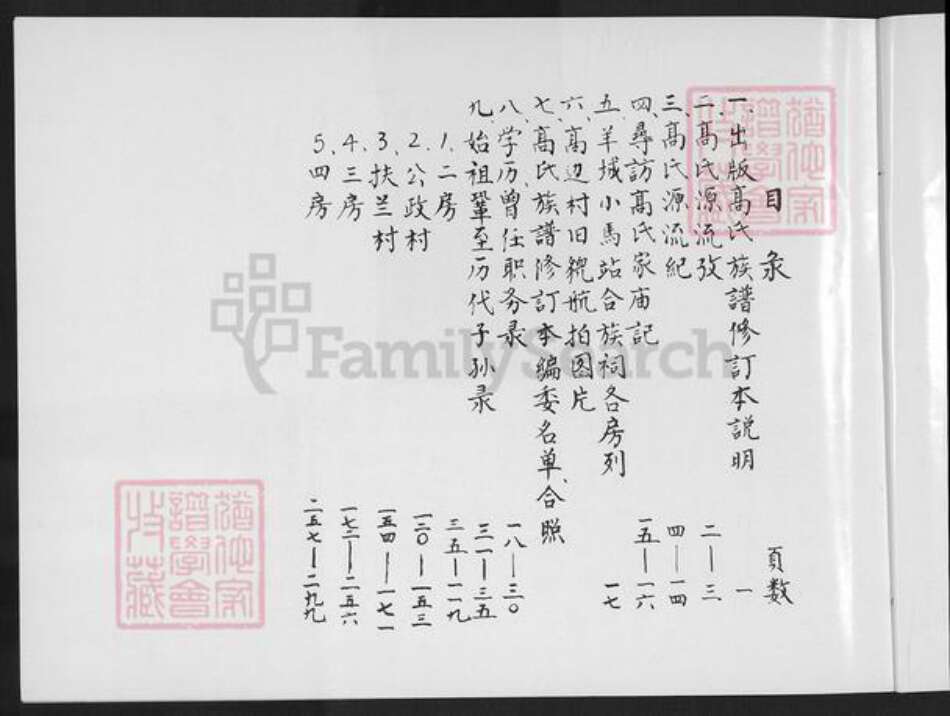 目录
頁数
一、出版高氏族譜修訂本説明
一
二、高氏源流攷
二—三
三、高氏源流紀
四—一四
四、尋訪高氏家庙記
一五—一六
五、羊城小馬站合族祠各房列
一七
六、高边村旧貌航拍图片
七、高氏族譜修訂本編委名单、合照
八、学历、曾任职务录
一八—三〇
九、始祖鞏至历代子孙录
三一—三五
1、二房
三五—一一九
2、公政村
一二〇—一五三
3、扶兰村
一五四—一七一
4、三房
一七二—二五六
5、四房
二五七—二九九
FamilySearch